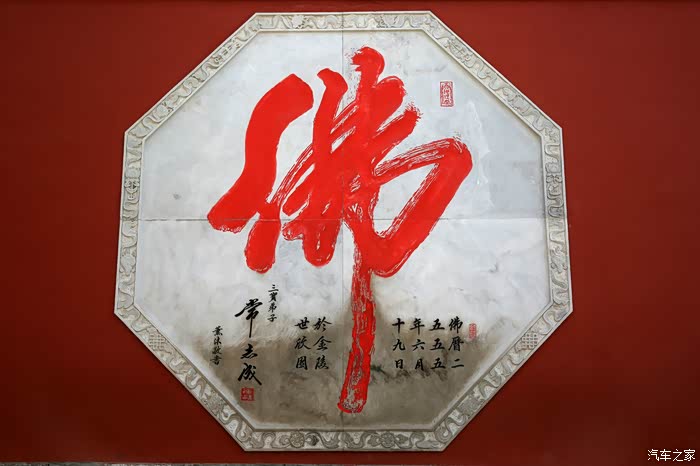 佛
佛曆二
五五五
年六月
十九日
於金陵
世欣園
三寶弟子
常志成
薰沐敬書
汽车之家